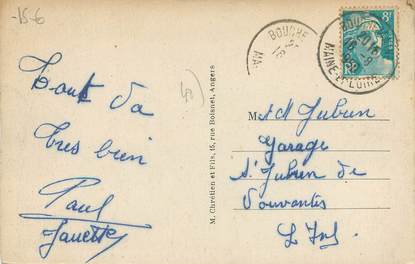 -15-6
Tout va
très bien
Paul
Janette
(40)
M. Chrétien et Fils, 15, rue Boisnet, Angers
BOUCHE
MA
BOU
MAINE-ET-LOIRE
8F
M
Garage
St Julien de
Vouvantes
L Inf